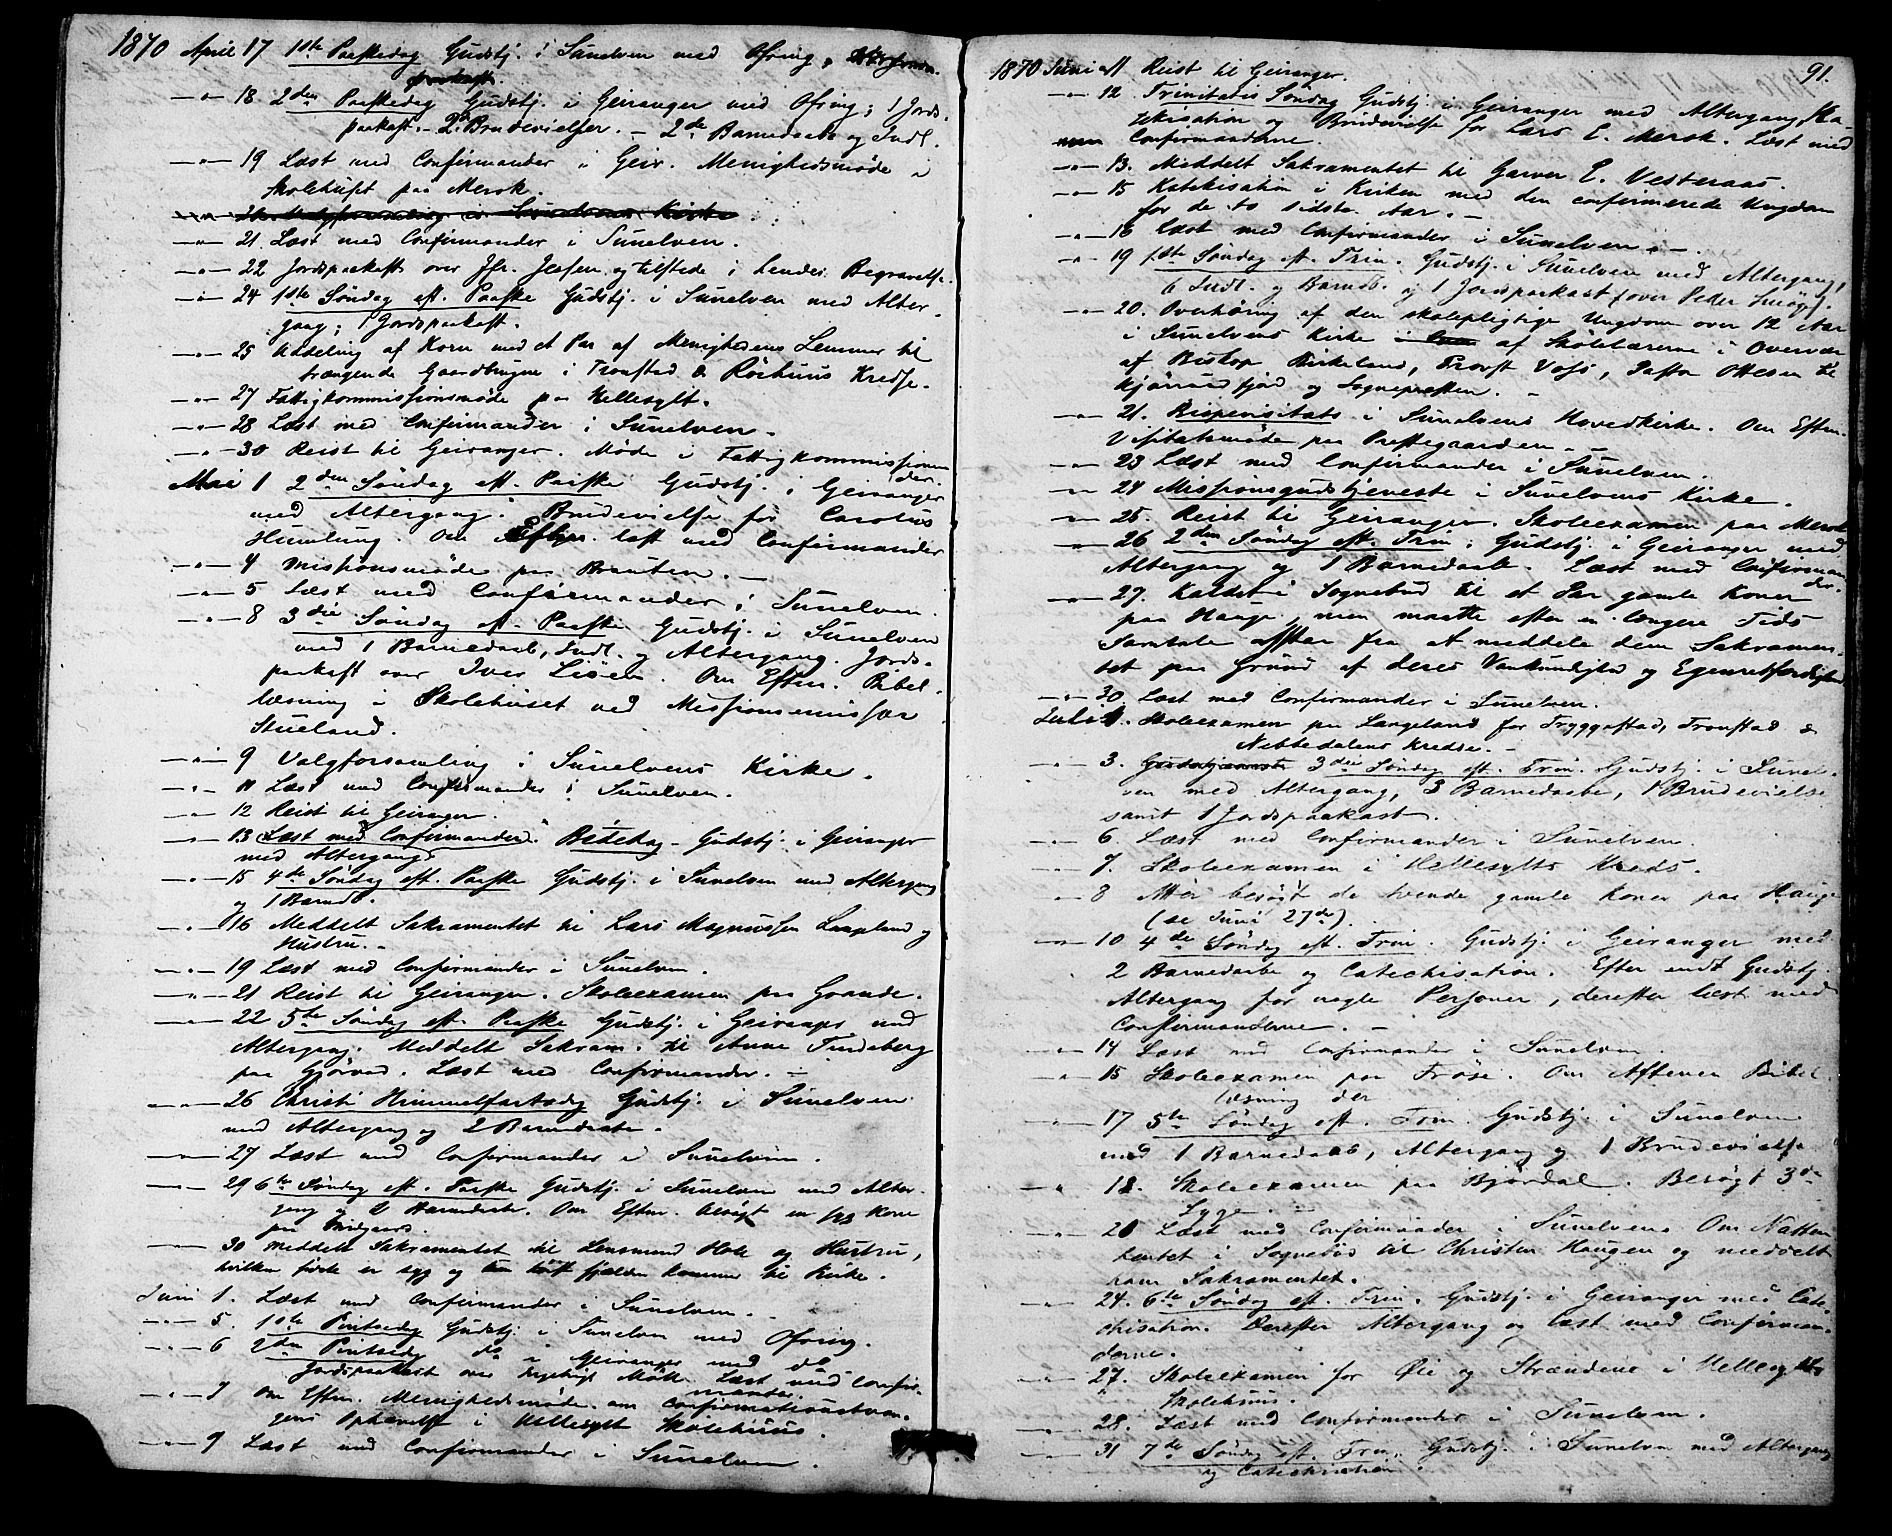 1870 April 17 1ste Paaskedag Gudstj. i Sunelven med Ofring,
—"— 18 2den Paaskedag Gudstj. i Geiranger med Ofring; 1 Jords-
paakast. – 2 Brudevielser. – 2de Barnedaab og Indl.
—"— 19 Læst med Confirmander i Geir. Menighedsmøde i
Skolehuset paa Merok.
—"— 21. Læst med Confirmander i Sunelven.
—"— 22 Jordspaakast over Jfr. og tilstede i Lendes Begravelse.
—"— 24 1ste Søndag eft. Paaske Gudstj. i Sunelven med Alter-
gang; 1 Jordspaakast.
—"— 25 Uddeling af Korn med et Par af Menighedens Lemmer til
trængende Gaardbrugere i Tronstad & Rørhuus Kredse.
—"— 27 Fattigkommissionsmøde paa Hellesylt.
—"— 28 Læst med Confirmander i Sunelven.
—"— 30 Reist til Geiranger. Møde i Fattigkommissionen
der.
Mai 1 2den Søndag eft. Paaske Gudstj. i Geiranger
med Altergang. Brudevielse for Carolus
Humlung. Om Efterm. læst med Confirmander
—"— 4 Missionsmøde paa Brauten. —
—"— 5 Læst med Confirmander i Sunelven.
—"— 8 3die Søndag eft. Paaske Gudstj. i Sunelven
med 1 Barnedaab, Indl. og Altergang. Jords-
paakast over Iver Liøen. Om Efterm. Bibel-
læsning i Skolehuset ved Missionsemissær
Stueland.
—"— 9 Valgforsamling i Sunelvens Kirke.
—"— 11 Læst med Confirmander i Sunelven.
—"— 12 Reist til Geiranger.
—"— 13 Læst med Confirmander. Bededag – Gudstj. i Geiranger
med Altergang.
—"— 15 4de Søndag eft. Paaske Gudstj. i Sunelven med Altergang
og 1 Barnd.
—"— 16 Meddelt Sakramentet til Lars Magnussen Langeland og
Hustru. –
—"— 19 Læst med Confirmander i Sunelven.
—"— 21 Reist til Geiranger. Skoleexamen paa Grande.
—"— 22 5te Søndag eft. Paaske Gudstj. i Geiranger med
Altergang. Meddelt Sakram. til Anne Indeberg
paa Gjørvad. Læst med Confirmander. –
—"— 26 Christi Himmelfartsdag Gudstj. i Sunelven
med Altergang og 2 Barnedaabe.
—"— 27 Læst med Confirmander i Sunelven.
—"— 29 6te Søndag eft. Paaske Gudstj. i Sunelven med Alter-
gang og 2 Barnedaabe. Om Efterm. besøgt en syg Kone
paa
—"— 30 Meddelt Sakramentet til Lensmand Hole og Hustru,
hvilken første er syg og kommer til Kirke.
Juni 1. Læst med Confirmander i Sunelven.
—"— 5. 1ste Pintsedag Gudstj. i Sunelven med Ofring.
—"— 6 2den Pintsedag do i Geiranger med do
Jordspaakast over Møll. Læst med Confir-
mander.
—"— 7 Om Efterm. Menighedsmøde om Confirmationstvan-
gens Ophævelse i Hellesylt Skolehuus.
—"— 9 Læst med Confirmander i Sunelven.
91.
1870 Juni 11 Reist til Geiranger.
—"— 12 Trinitatis Søndag Gudstj. i Geiranger med Altergang, Ka-
tekisation og Brudevielse for Lars E. Merok. Læst med
Confirmanderne.
—"— 13. Meddelt Sakramentet til Garver E. Vesteraas.
—"— 15 Katekisation i Kirken med den confirmerede Ungdom
for de to sidste Aar. –
—"— 16 Læst med Confirmander i Sunelven. –
—"— 19 1ste Søndag eft. Trin. Gudstj. i Sunelven med Altergang,
6 Indl. og Barnd. og 1 Jordspaakast (over Peder
—"— 20. Overhøring af den skolepligtige Ungdom over 12 Aar
i Sunelvens Kirke af Skolelærerne i Overvær
af Biskop Birkeland, Provst Voss, Pastor Ottesen til
og Sognepresten. –
—"— 21. Bispevisitats i Sunelvens Hovedkirke. Om Efterm.
Visitatsmøde paa Prestegaarden. –
—"— 23 Læst med Confirmander i Sunelven.
—"— 24 Missionsgudstjeneste i Sunelvens Kirke.
—"— 25. Reist til Geiranger. Skoleexamen paa Merok
—"— 26 2den Søndag eft. Trin. Gudstj. i Geiranger med
Altergang og 1 Barnedaab. Læst med Confirman-
der.
—"— 27. Kaldet i Sognebud til et Par gamle Koner
paa Hauge, men maatte efter en længere Tids
Samtale afstaa fra at meddele dem Sakramen-
tet paa Grund af deres Vankundighed og Egenretfærdighed
—"— 30 Læst med Confirmander i Sunelven.
Juli 1. Skoleexamen paa Langeland for Tryggestad, Tronstad &
Nebbedalens Kredse. –
—"— 3. 3die Søndag eft. Trin. Gudstj. i Sunel-
ven med Altergang, 3 Barnedaabe, 1 Brudevielse
samt 1 Jordspaakast.
—"— 6 Læst med Confirmander i Sunelven.
—"— 7. Skoleexamen i Hellesylts Kreds.
—"— 8 Atter besøgt de tvende gamle Koner paa Hauge
(se Juni 27de).
—"— 10 4de Søndag eft. Trin. Gudstj. i Geiranger med
2 Barnedaabe og Catechisation. Efter endt Gudstj.
Altergang for nogle Personer, derefter læst med
Confirmanderne. –
—"— 14 Læst med Confirmander i Sunelven
—"— 15 Skoleexamen paa Frøse. Om Aftenen Bibel-
læsning der
—"— 17 5te Søndag eft. Trin. Gudstj. i Sunelven
med 1 Barnedaab, Altergang og 1 Brudevielse
—"— 18. Skoleexamen paa Bjørdal. Besøgt 3de
Syge. –
—"— 20 Læst med Confirmander i Sunelven. Om Natten
hentet i Sognebud til Christen Haugen og meddelt
ham Sakramentet.
—"— 24. 6te Søndag eft. Trin. Gudstj. i Geiranger med Cate-
chisation. Derefter Altergang og læst med Confirman-
derne.
—"— 27. Skoleexamen for Øie og Strandene i Hellesylts
Skolehuus.
—"— 28. Læst med Confirmander i Sunelven.
—"— 31 7de Søndag eft. Trin. Gudstj. i Sunelven med Altergang
og Catechisation.